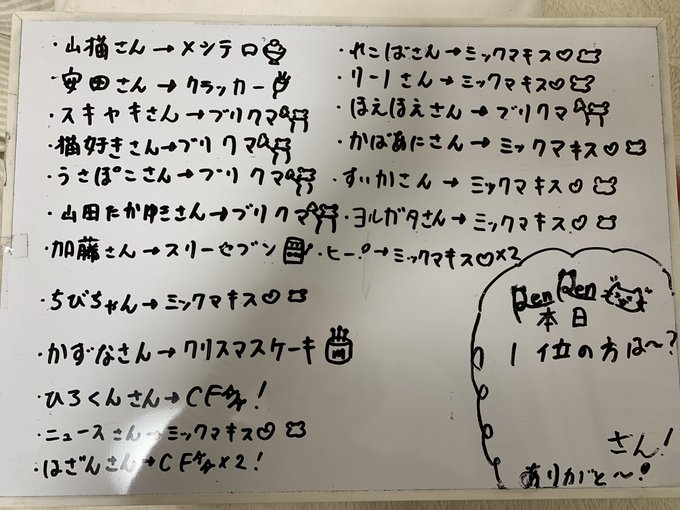 ・山猫さん→メシテロ
・安田さん→クラッカー
・スキヤキさん→ブリクマ
・猫好きさん→ブリクマ
・うさぽこさん→ブリクマ
・山田たかゆきさん→ブリクマ
・加藤さん→スリーセブン
・ちびちゃん→ミックマキス♡
・かずなさん→クリスマスケーキ
・ひろくんさん→CF!
・ニュースさん→ミックマキス♡
・はざんさん→CF×2!
・やこばさん→ミックマキス♡
・りーしさん→ミックマキス♡
・ほえほえさん→ブリクマ
・かばあにさん→ミックマキス♡
・すいかさん→ミックマキス♡
・ヨルガタさん→ミックマキス♡
・ヒーロ→ミックマキス♡×2
RenRen
本日
1位の方は〜?
さん!
ありがと〜!